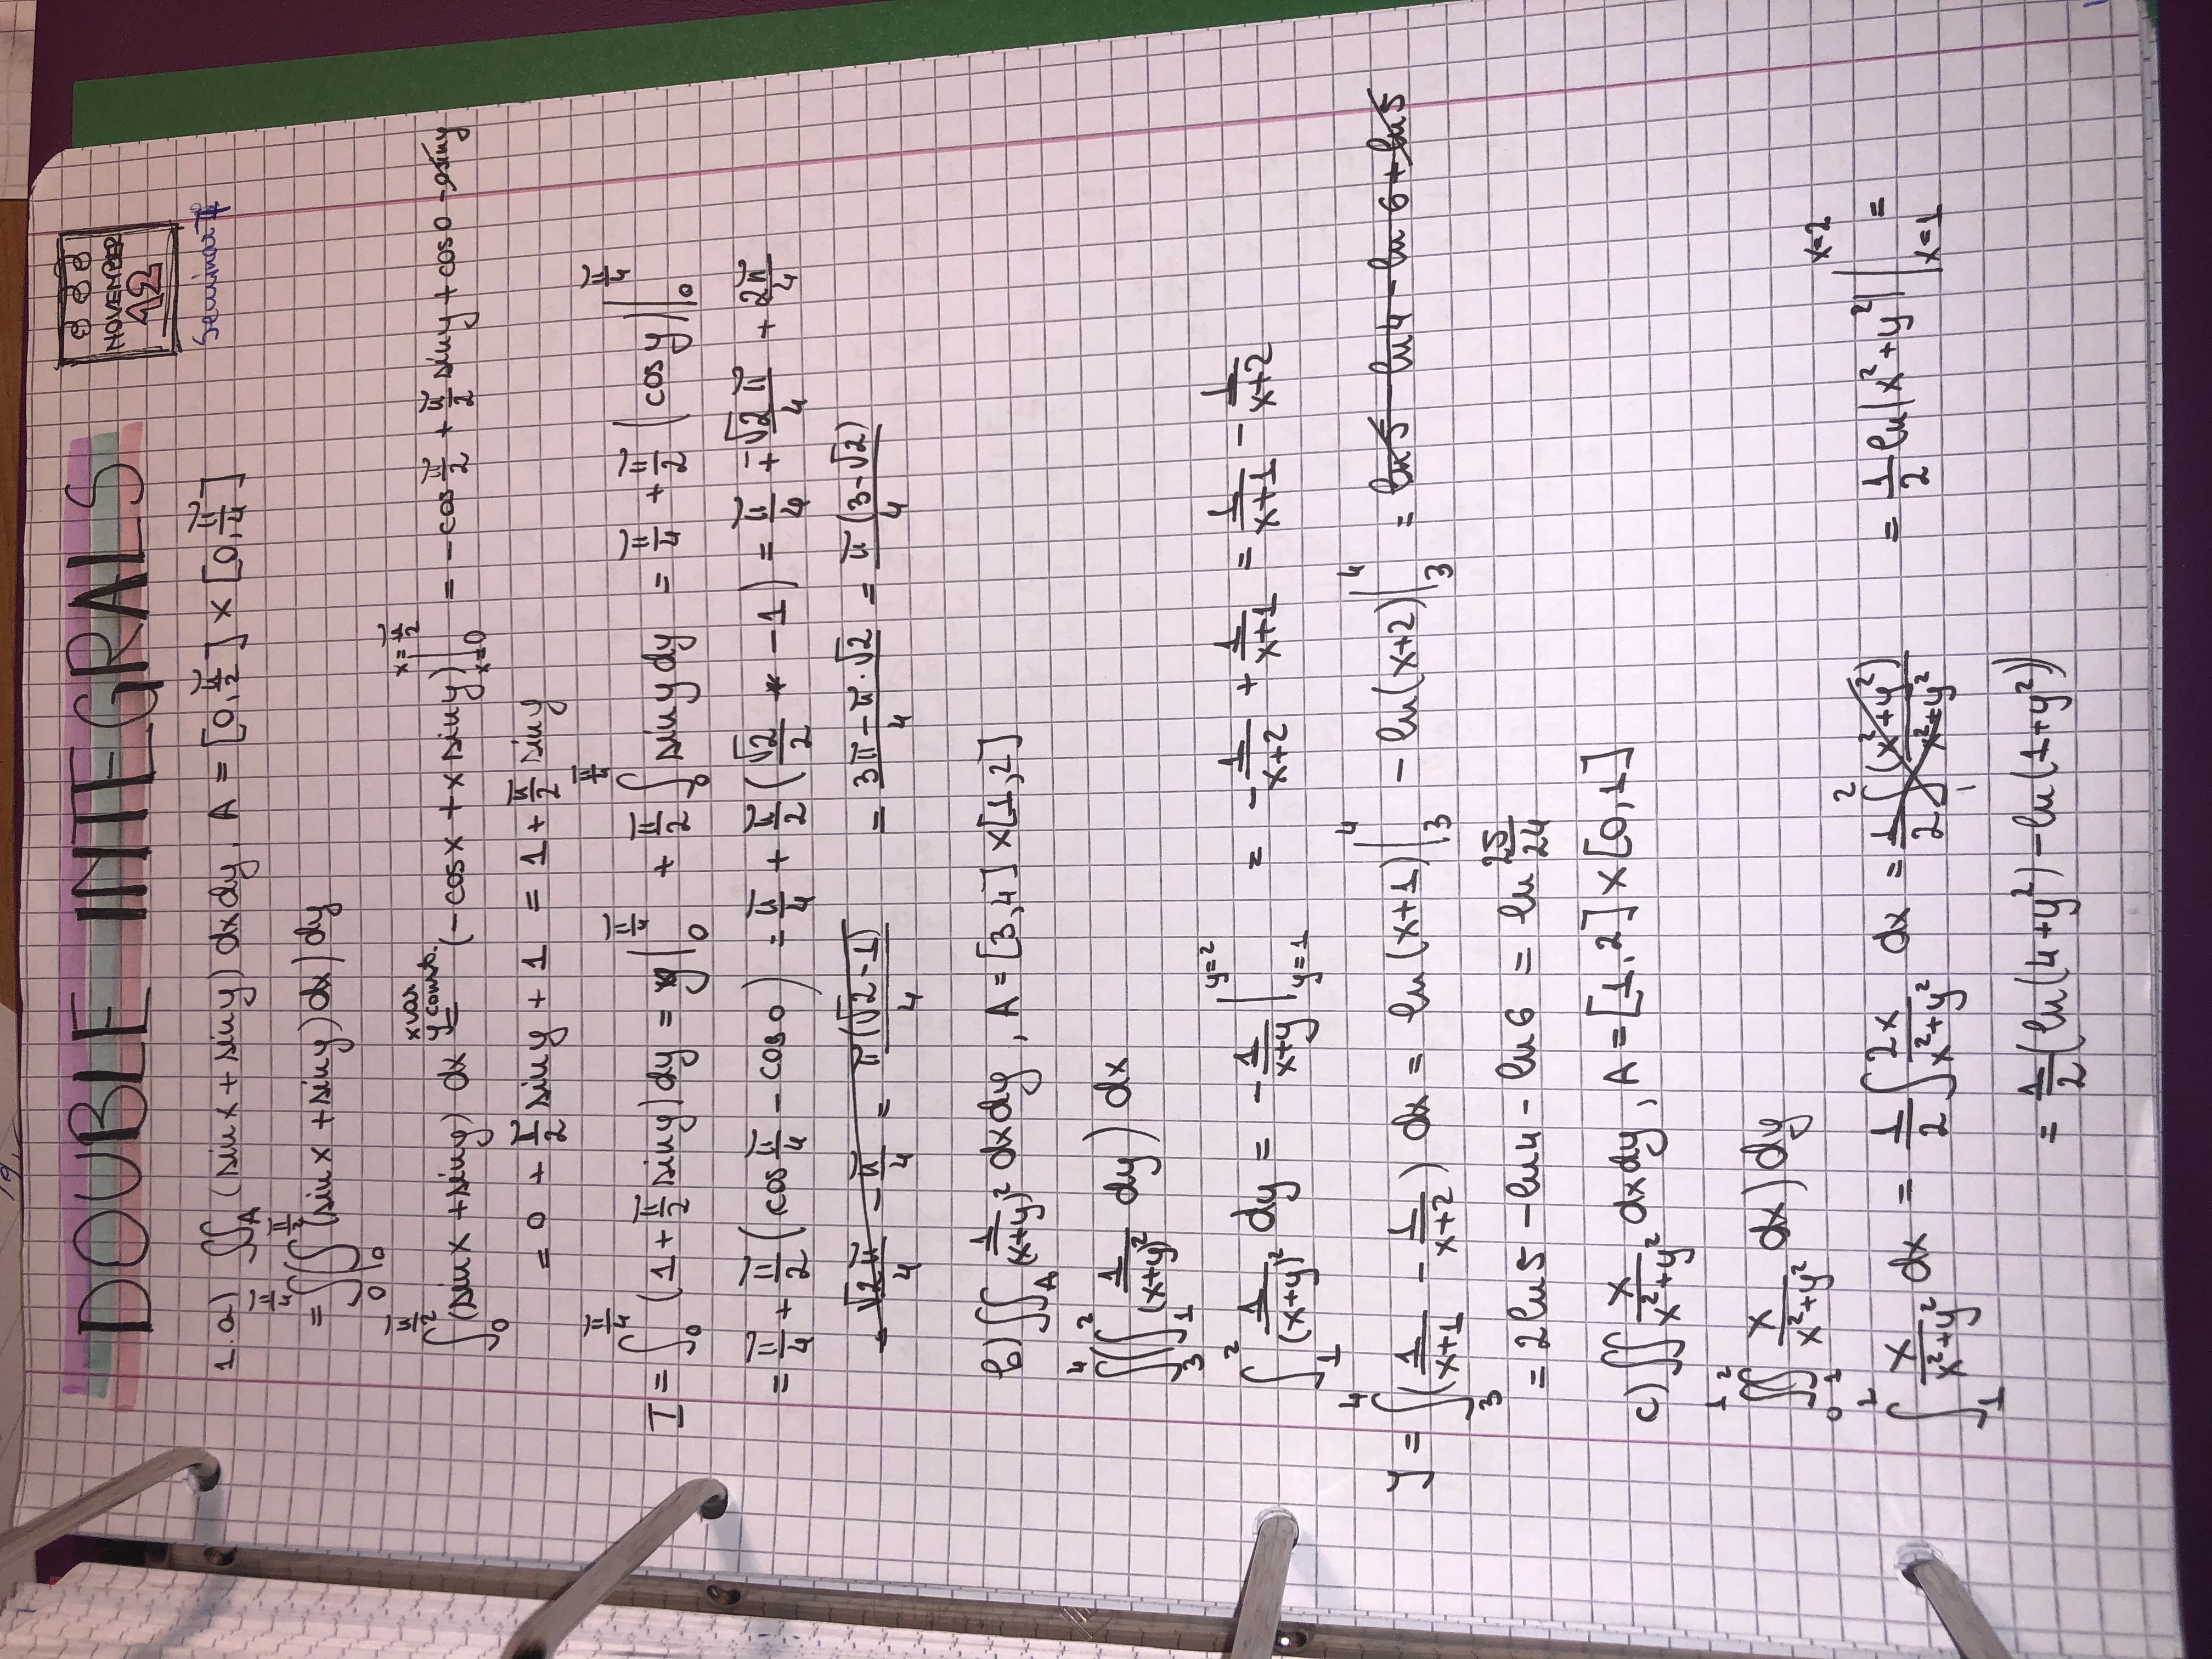 DOUBLE INTEGRALS
NOVEMBER
12
Seminar 7
1. a) ∬_A (sin x + sin y) dx dy, A = [0, π/2] × [0, π/4]
= ∫_0^{π/4} (∫_0^{π/2} (sin x + sin y) dx) dy
x var
y const.
∫_0^{π/2} (sin x + sin y) dx = (-cos x + x sin y) |_{x=0}^{x=π/2} = -cos π/2 + π/2 sin y + cos 0 - 0 sin y
= 0 + π/2 sin y + 1 = 1 + π/2 sin y
I = ∫_0^{π/4} (1 + π/2 sin y) dy = y |_0^{π/4} + π/2 ∫_0^{π/4} sin y dy = π/4 + π/2 (cos y) |_0^{π/4}
= π/4 + π/2 (cos π/4 - cos 0) = π/4 + π/2 (√2/2 - 1) = π/4 + -√2 π/4 + 2π/4
= √2 π/4 - π/4 = π(√2 - 1)/4 = (3π - π·√2)/4 = π(3-√2)/4
b) ∬_A 1/(x+y)² dx dy, A = [3,4] × [1,2]
∫_3^4 (∫_1^2 1/(x+y)² dy) dx
∫_1^2 1/(x+y)² dy = -1/(x+y) |_{y=1}^{y=2} = -1/(x+2) + 1/(x+1) = 1/(x+1) - 1/(x+2)
y = ∫_3^4 (1/(x+1) - 1/(x+2)) dx = ln(x+1) |_3^4 - ln(x+2) |_3^4 = ln 5 - ln 4 - ln 6 + ln 5
= 2 ln 5 - ln 4 - ln 6 = ln 25/24
c) ∬ x/(x²+y²) dx dy, A = [1,2] × [0,1]
∫_0^1 ∫_1^2 x/(x²+y²) dx) dy
∫_1^2 x/(x²+y²) dx = 1/2 ∫ 2x/(x²+y²) dx = 1/2 ∫_1^2 (x²+y²)/(x²+y²) = 1/2 ln|x²+y²| |_{x=1}^{x=2} =
= 1/2 (ln(4+y²) - ln(1+y²))